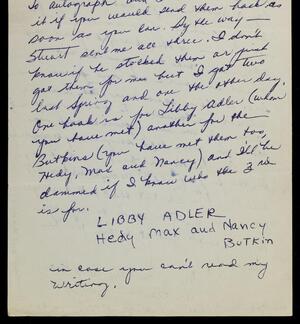 To autograph
it if you would send them back as
soon as you can. By the way —
Stuart sent me all three. I don't
know if he stocked them or just
got them for me but I got two
last Spring and one the other day.
One book is for Libby Adler (whom
you have met) another for the
Butkins (you have met them too,
Hedy, Max and Nancy) and I'll be
dammed if I know who the 3rd
is for.
LIBBY ADLER
Hedy Max and Nancy
Butkin
in case you can't read my
writing.